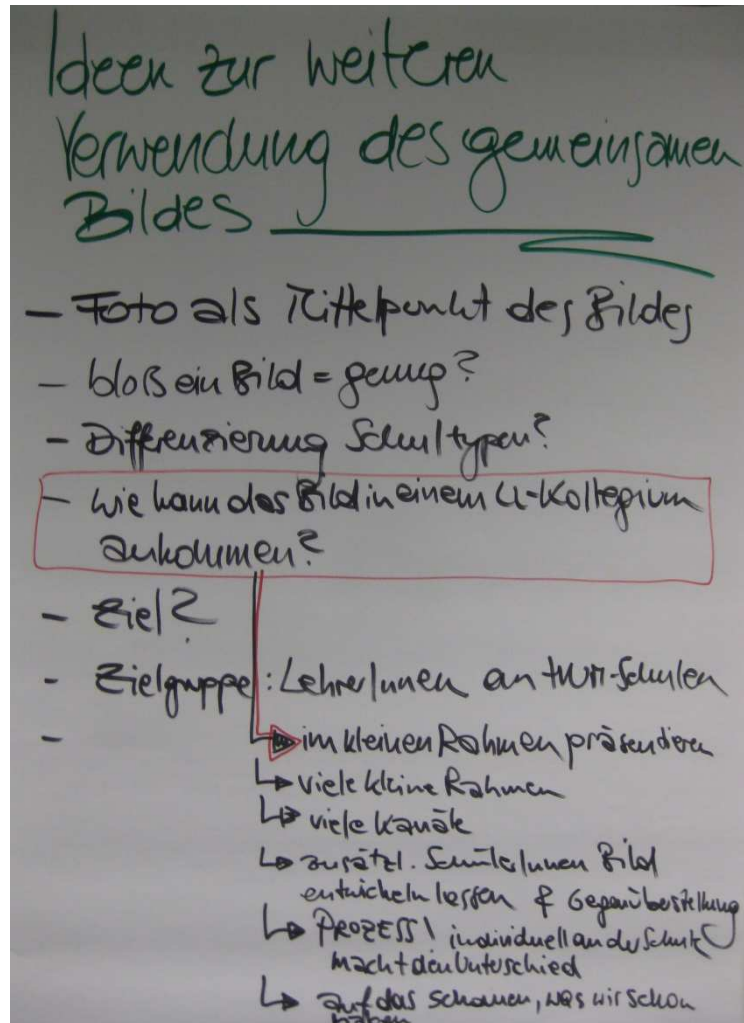 Ideen zur weiteren
Verwendung des gemeinsamen
Bildes
- Foto als Mittelpunkt des Bildes
- bloß ein Bild = genug?
- Differenzierung Schultypen?
- Wie kann das Bild in einem LL-Kollegium
ankommen?
- Ziel?
- Zielgruppe: LehrerInnen an HUM-Schulen
- im kleinen Rahmen präsentieren
viele kleine Rahmen
viele Kanäle
zusätzl. SchülerInnen Bild
entwickeln lassen & Gegenüberstellung
PROZESS! individuell an der Schule
macht den Unterschied
auf das schauen, was wir schon
haben